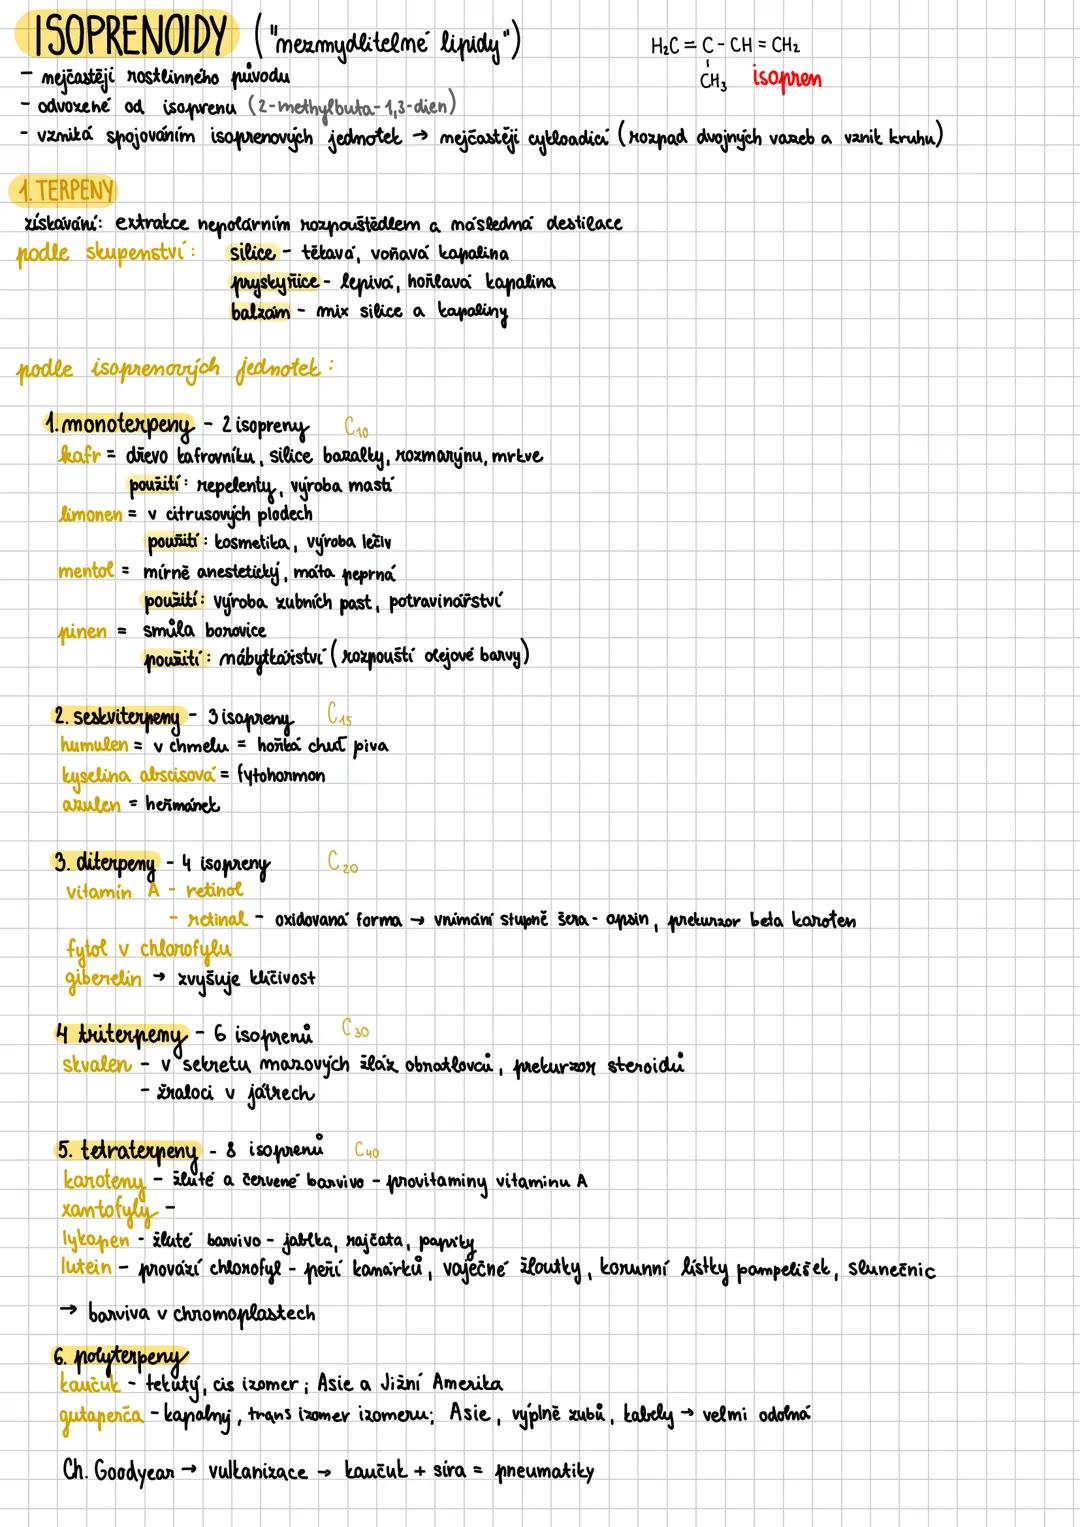 ISOPRENOIDY ("nezmýdlitelné lipidy")
- nejčastěji rostlinného původu
- odvozené od isoprenu (2-methylbuta-1,3-dien)
- vzniká spojováním isoprenových jednotek → nejčastěji cykloadicí (rozpad dvojných vazeb a vznik kruhu)
H₂C = C - CH = CH₂
CH₃ isopren
1. TERPENY
získávání: extrakce nepolárním rozpouštědlem a následná destilace
podle skupenství: silice - těkavá, voňavá kapalina
pryskyřice - lepivá, hořlavá kapalina
balzám - mix silice a kapaliny
podle isoprenových jednotek:
1. monoterpeny - 2 isopreny C₁₀
kafr = dřevo kafrovníku, silice bazalky, rozmarýnu, mrkve
použití: repelenty, výroba mastí
limonen = v citrusových plodech
použití: kosmetika, výroba léčiv
mentol = mírně anestetický, máta peprná
použití: výroba zubních past, potravinářství
pinen = smůla borovice
použití: nábytkářství (rozpouští olejové barvy)
2. seskviterpeny - 3 isopreny C₁₅
humulen = v chmelu = hořká chuť piva
kyselina abscisová = fytohormon
azulen = heřmánek
3. diterpeny - 4 isopreny C₂₀
vitamín A - retinol
- retinal - oxidovaná forma → vnímání stupně šera - opsin, prekurzor beta karoten
fytol v chlorofylu
giberelin → zvyšuje klíčivost
4 triterpeny - 6 isoprenů C₃₀
skvalen - v sekretu mazových žláz obratlovců, prekurzor steroidů
- žraloci v játrech
5. tetraterpeny - 8 isoprenů C₄₀
karoteny - žluté a červené barvivo - provitaminy vitaminu A
xantofyly -
lykopen - žluté barvivo - jablka, rajčata, papriky
lutein - provází chlorofyl - peří kanárků, vaječné žloutky, korunní lístky pampelišek, slunečnic
→ barviva v chromoplastech
6. polyterpeny
kaučuk - tekutý, cis izomer; Asie a Jižní Amerika
gutaperča - kapalný, trans izomer izomeru; Asie, výplně zubů, kabely → velmi odolná
Ch. Goodyear → vulkanizace → kaučuk + síra = pneumatiky